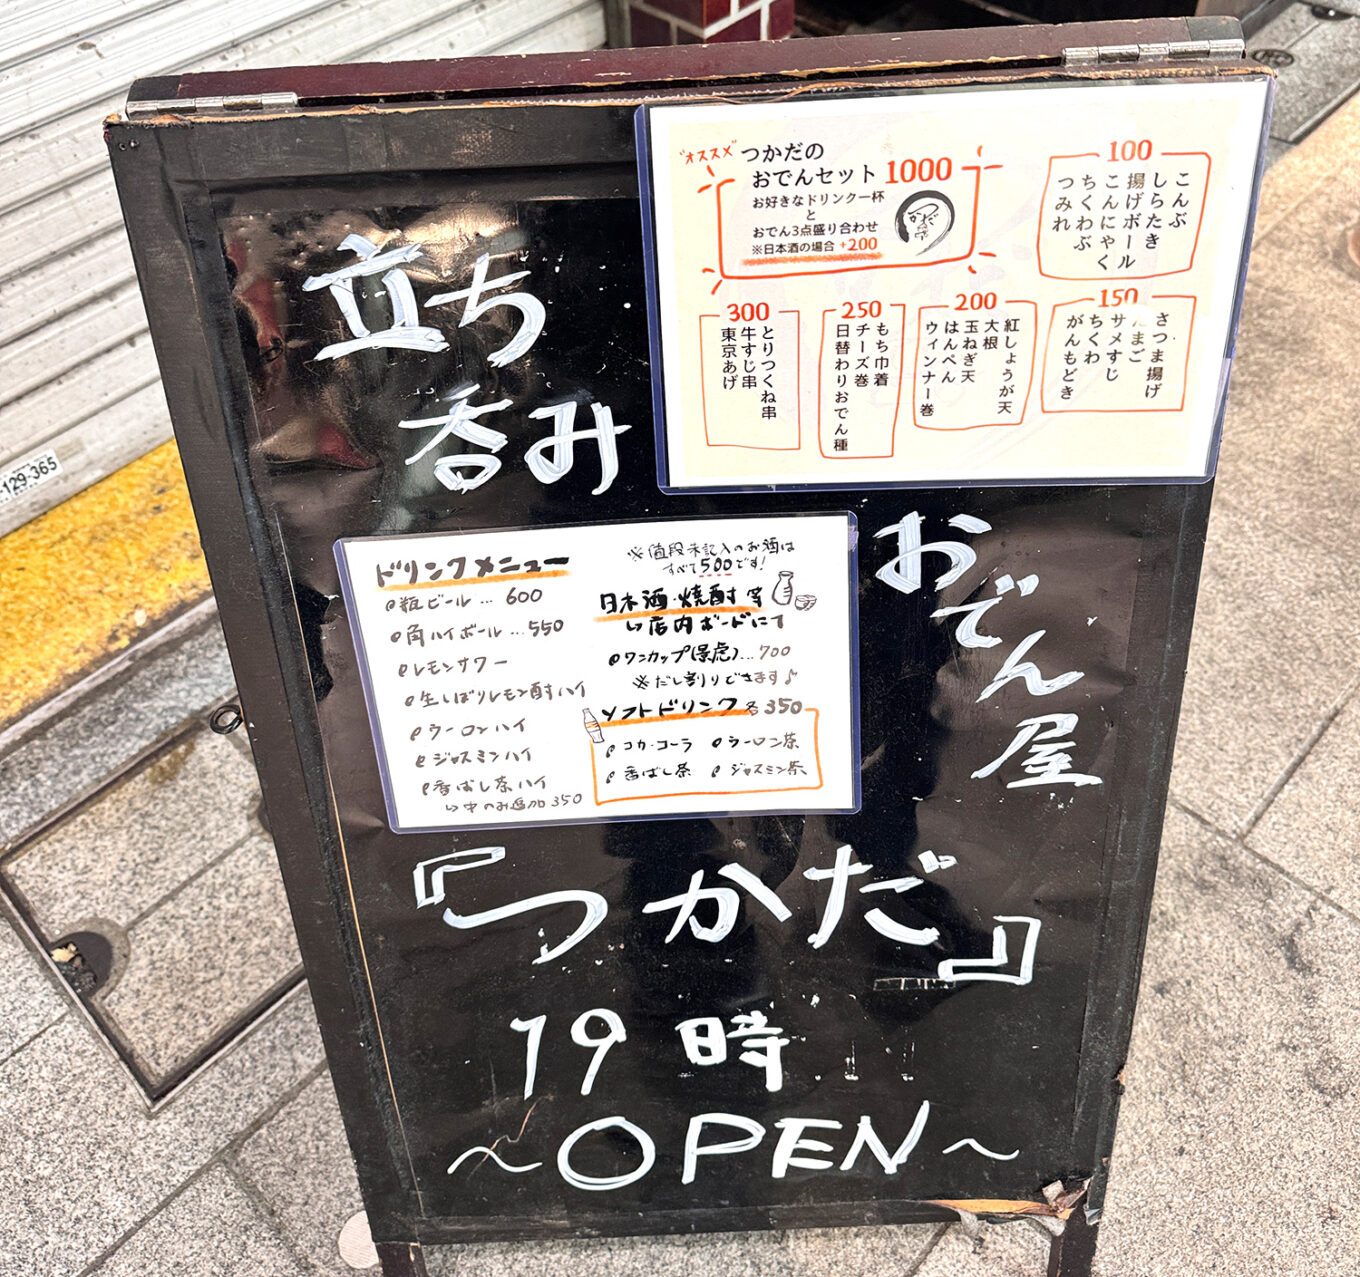 立ち
呑み
おでん屋
『つかだ』
19時
～OPEN～
"オススメ"
つかだの
おでんセット 1000
お好きなドリンク一杯
と
おでん3点盛り合わせ
※日本酒の場合 +200
つかだ
100
こんぶ
しらたき
揚げボール
こんにゃく
ちくわぶ
つみれ
300
とりつくね串
牛すじ串
東京あげ
250
もち巾着
チーズ巻
日替わりおでん種
200
紅しょうが天
大根
玉ねぎ天
はんぺん
ウィンナー巻
150
さつま揚げ
たまご
サメすじ
ちくわ
がんもどき
ドリンクメニュー
瓶ビール… 600
角ハイボール…550
レモンサワー
生しぼりレモン酎ハイ
ウーロンハイ
ジャスミンハイ
香ばし茶ハイ
↳中のみ追加 350
※値段未記入のお酒は
すべて500です!
日本酒・焼酎 等
↳店内ボードにて
ワンカップ(景虎)…700
※だし割りできます♪
ソフトドリンク 各350
コカ・コーラ
ウーロン茶
香ばし茶
ジャスミン茶
129-365